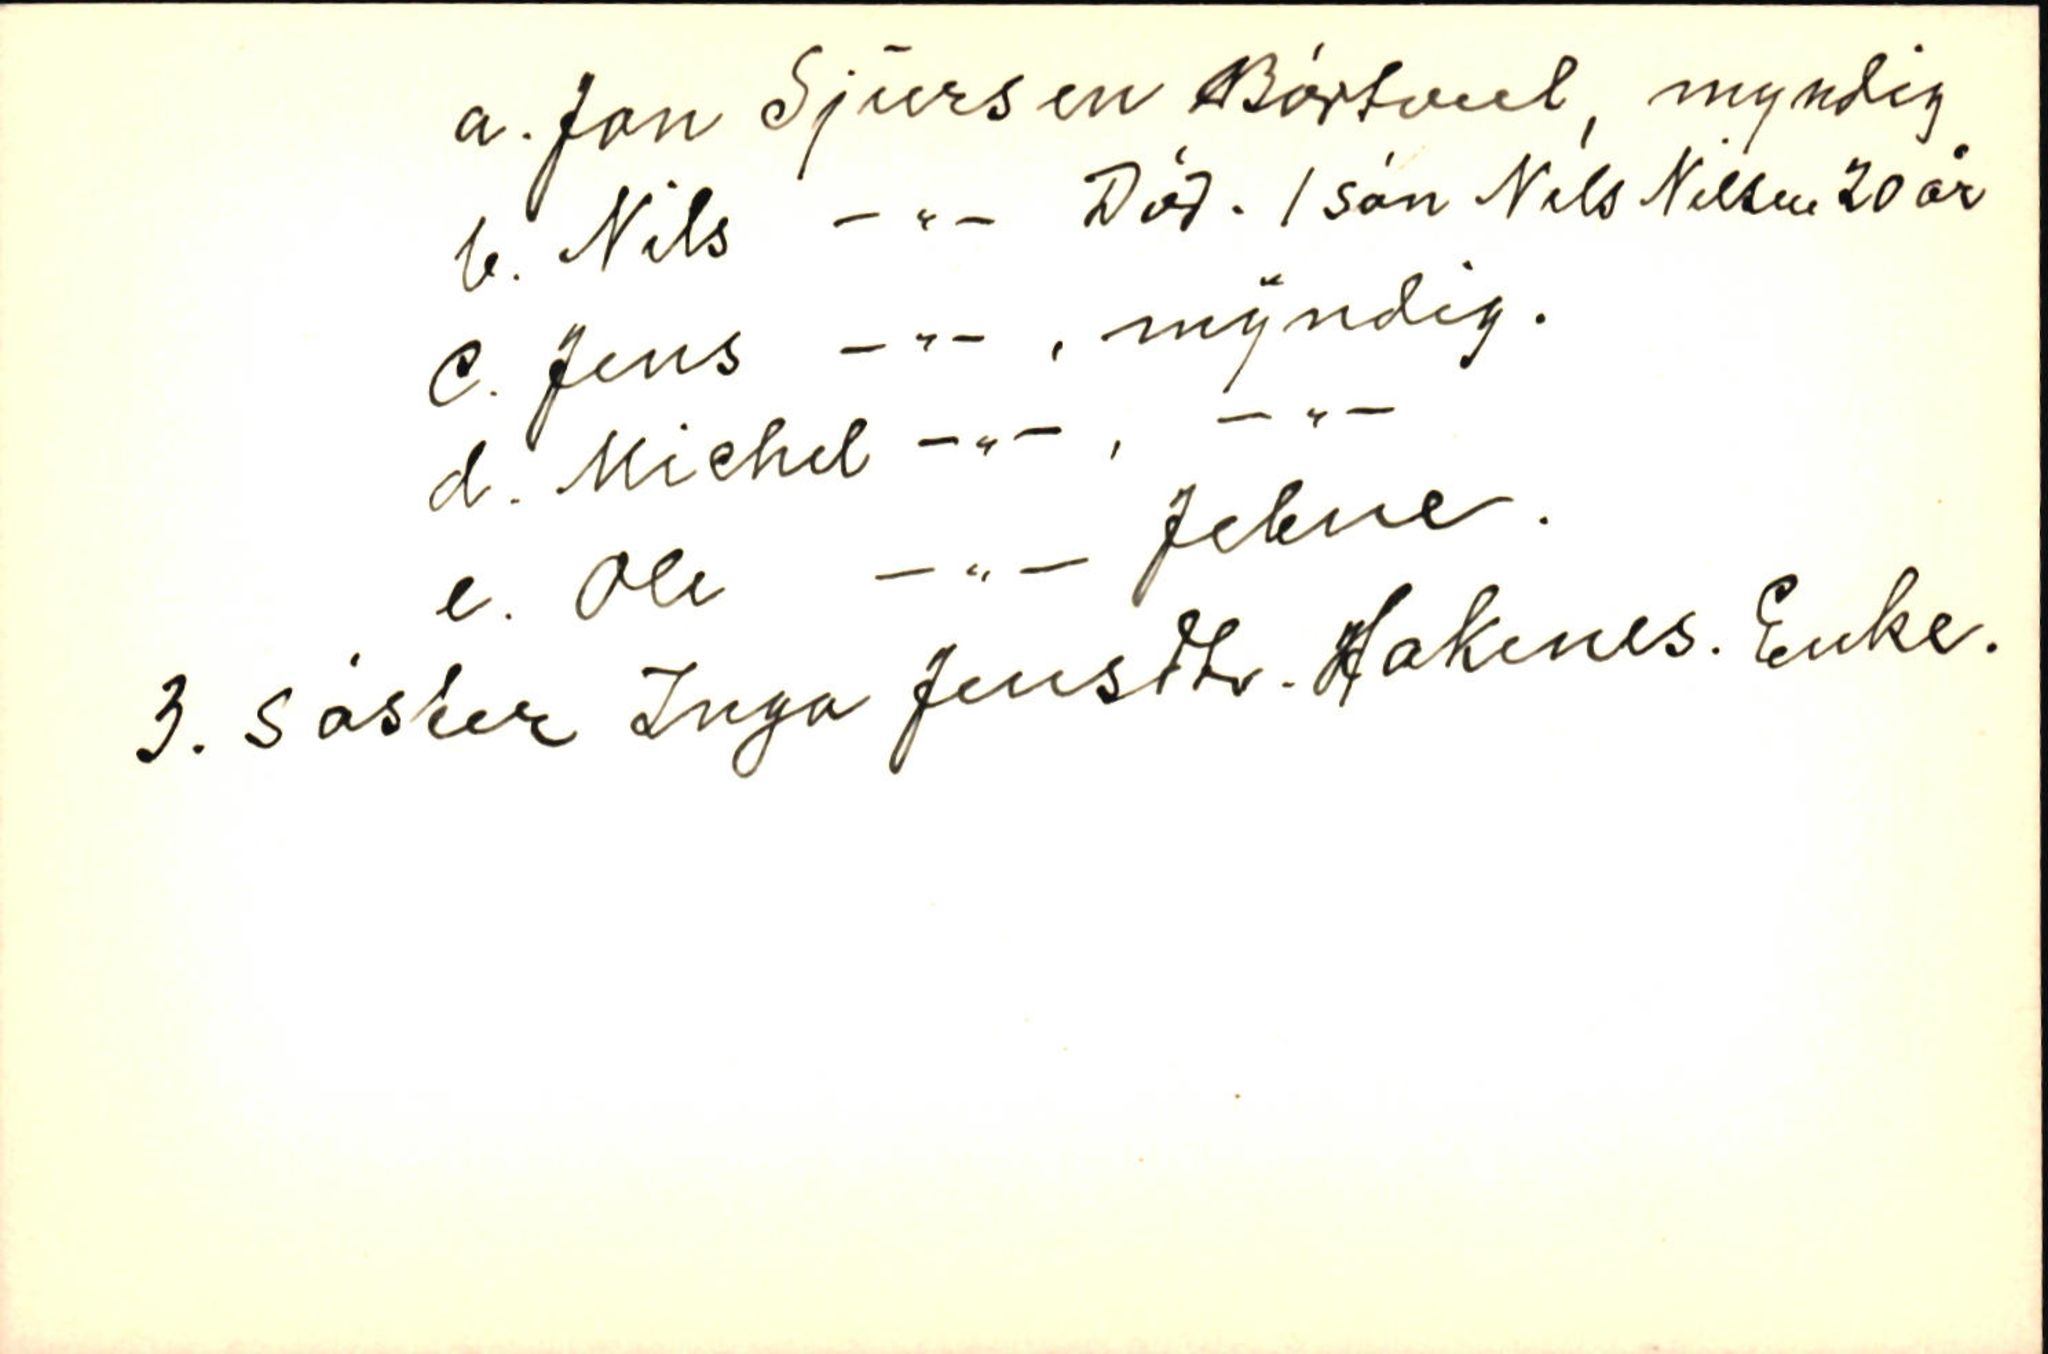 a. Jon Sjursen Børtveit, myndig
b. Nils -"- Död. 1 sön Nils Nilsen 20 år
C. Jens -"-, myndig.
d. Michel -"-, -"-
e. Ole -"- Jebne.
3. söster Inga Jensdtr. Hakenes. Enke.